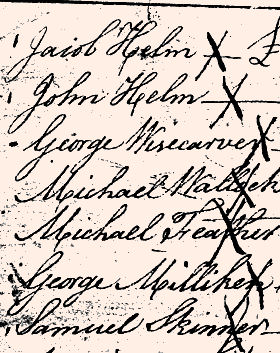 Jacob Helm X £
John Helm X
George Wisecarver X
Michael Wallack
Michael Feather X
George Milliken X
Samuel Skinner X